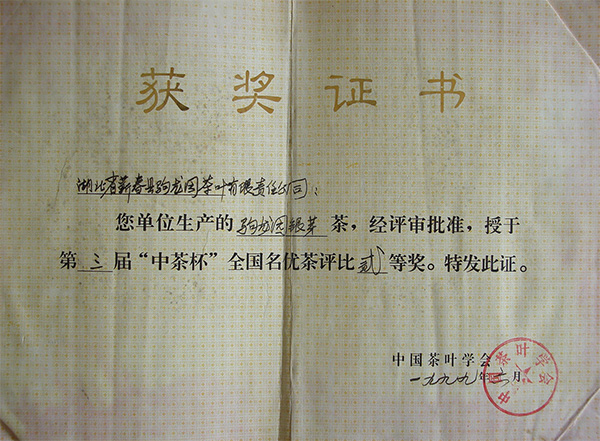 获奖证书
湖北省蕲春县驹龙园茶叶有限责任公司：
您单位生产的驹龙园银芽茶，经评审批准，授于
第三届“中茶杯”全国名优茶评比贰等奖。特发此证。
中国茶叶学会
一九九九年六月
中国茶叶学会